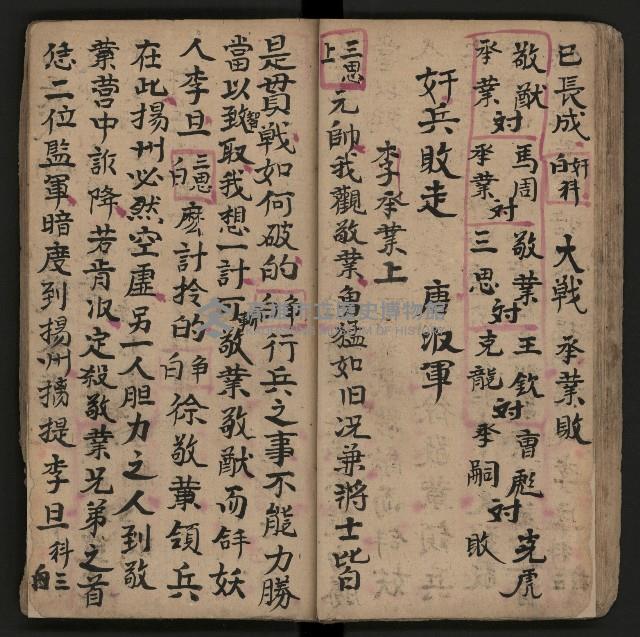 已長成 奸科白 大戰 承業敗
敬猷 馬周 敬業 王欽 曹彪 克虎
對 對 對 對 對
承業 承業 三思 克龍 承嗣 敗
奸兵敗走 唐收軍
李承業上
三思上 元帥我觀敬業魚猛如旧况兼將士皆
是貫戰如何破的 争白 行兵之事不能力勝
當以智致取我想一計可斬敬業敬猷而 妖
人李旦 三思白 麽計拎的 争白 徐敬業領兵
在此揚州必然空虛另一人胆力之人到敬
業营中詐降若肯收定殺敬業兄弟之首
恁二位監軍暗度到揚州擒提李旦 科 三白
高雄市立歷史博物館
KAOHSIUNG MUSEUM OF HISTORY